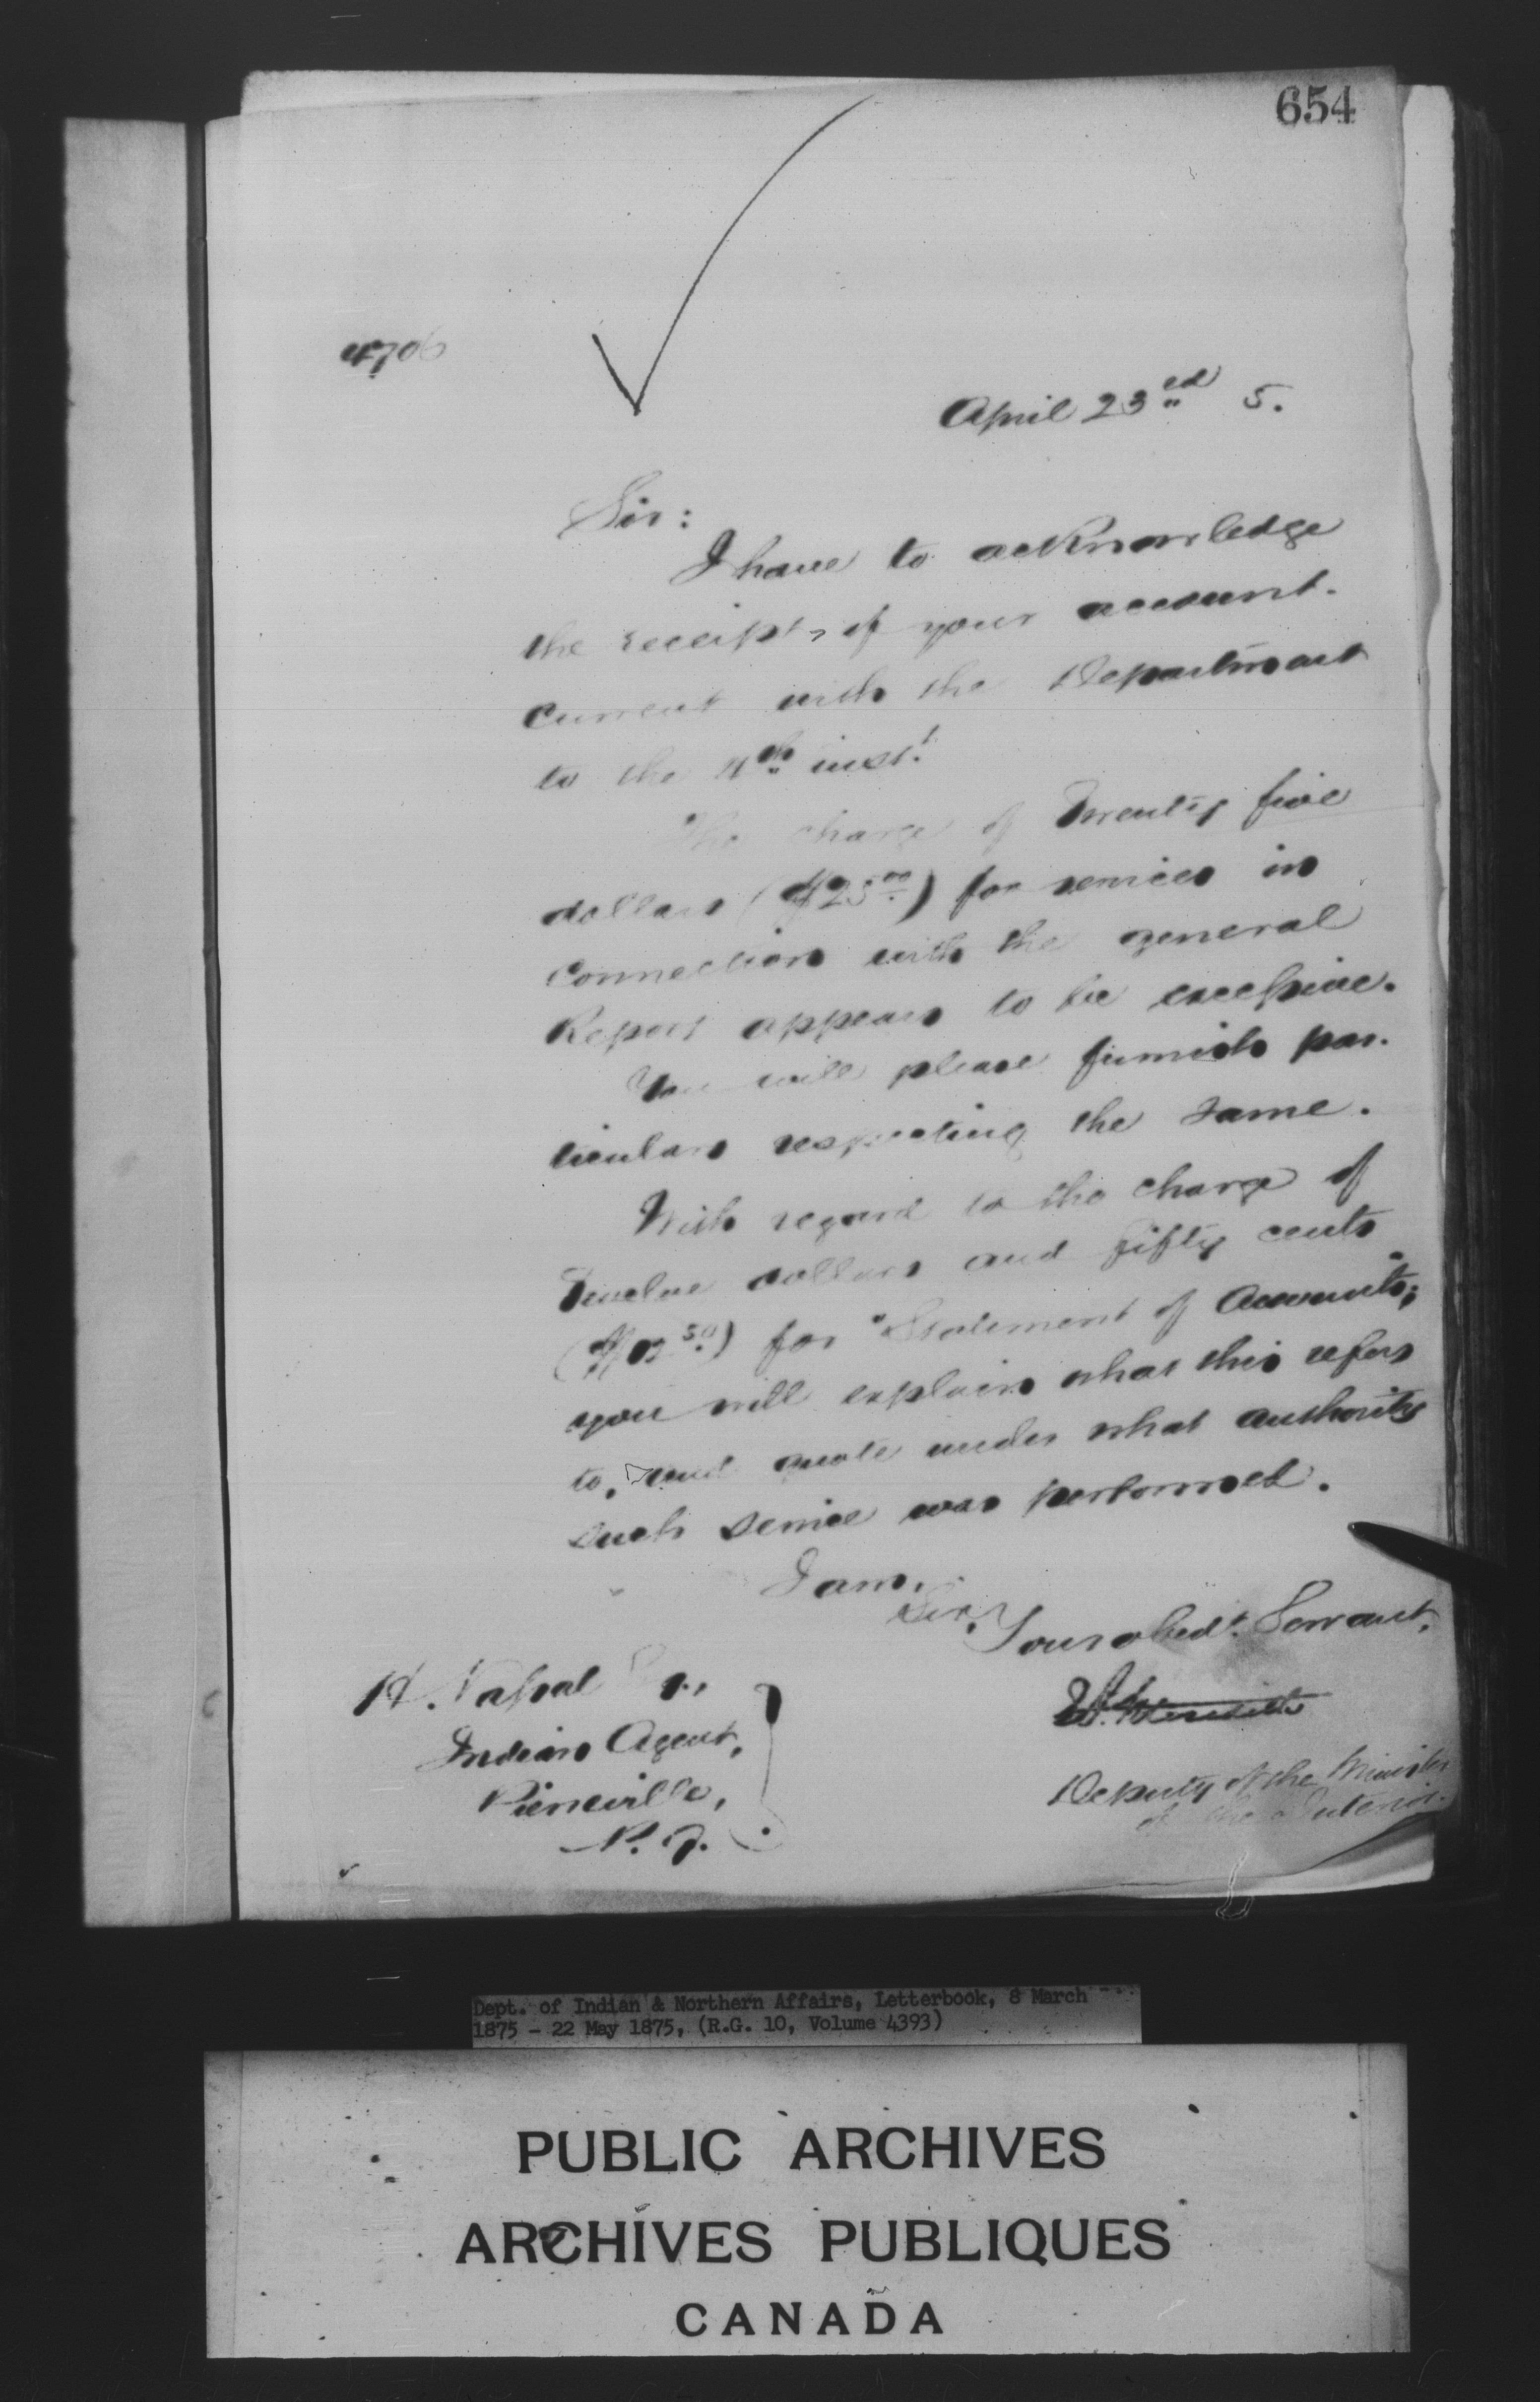 654
4706
April 23rd 5.
Sir:
I have to acknowledge
the receipt, of your account.
current with the Department
to the 4th inst.
The charge of Twenty five
dollars ($25.00) for services in
connection with the general
Report appears to be excessive.
You will please furnish par-
ticulars respecting the same.
With regard to the charge of
Twelve dollars and fifty cents
($12.50) for "Statement of Accounts";
you will explain what this refers
to, and quote under what authority
such service was performed.
I am,
Sir,
Your obedt. Servant,
W. Meredith
Deputy of the Minister
of the Interior.
H. Vassal Esq.,
Indian Agent,
Pierreville,
P. Q.
Dept. of Indian & Northern Affairs, Letterbook, 8 March
1875 - 22 May 1875, (R.G. 10, Volume 4393)
PUBLIC ARCHIVES
ARCHIVES PUBLIQUES
CANADA